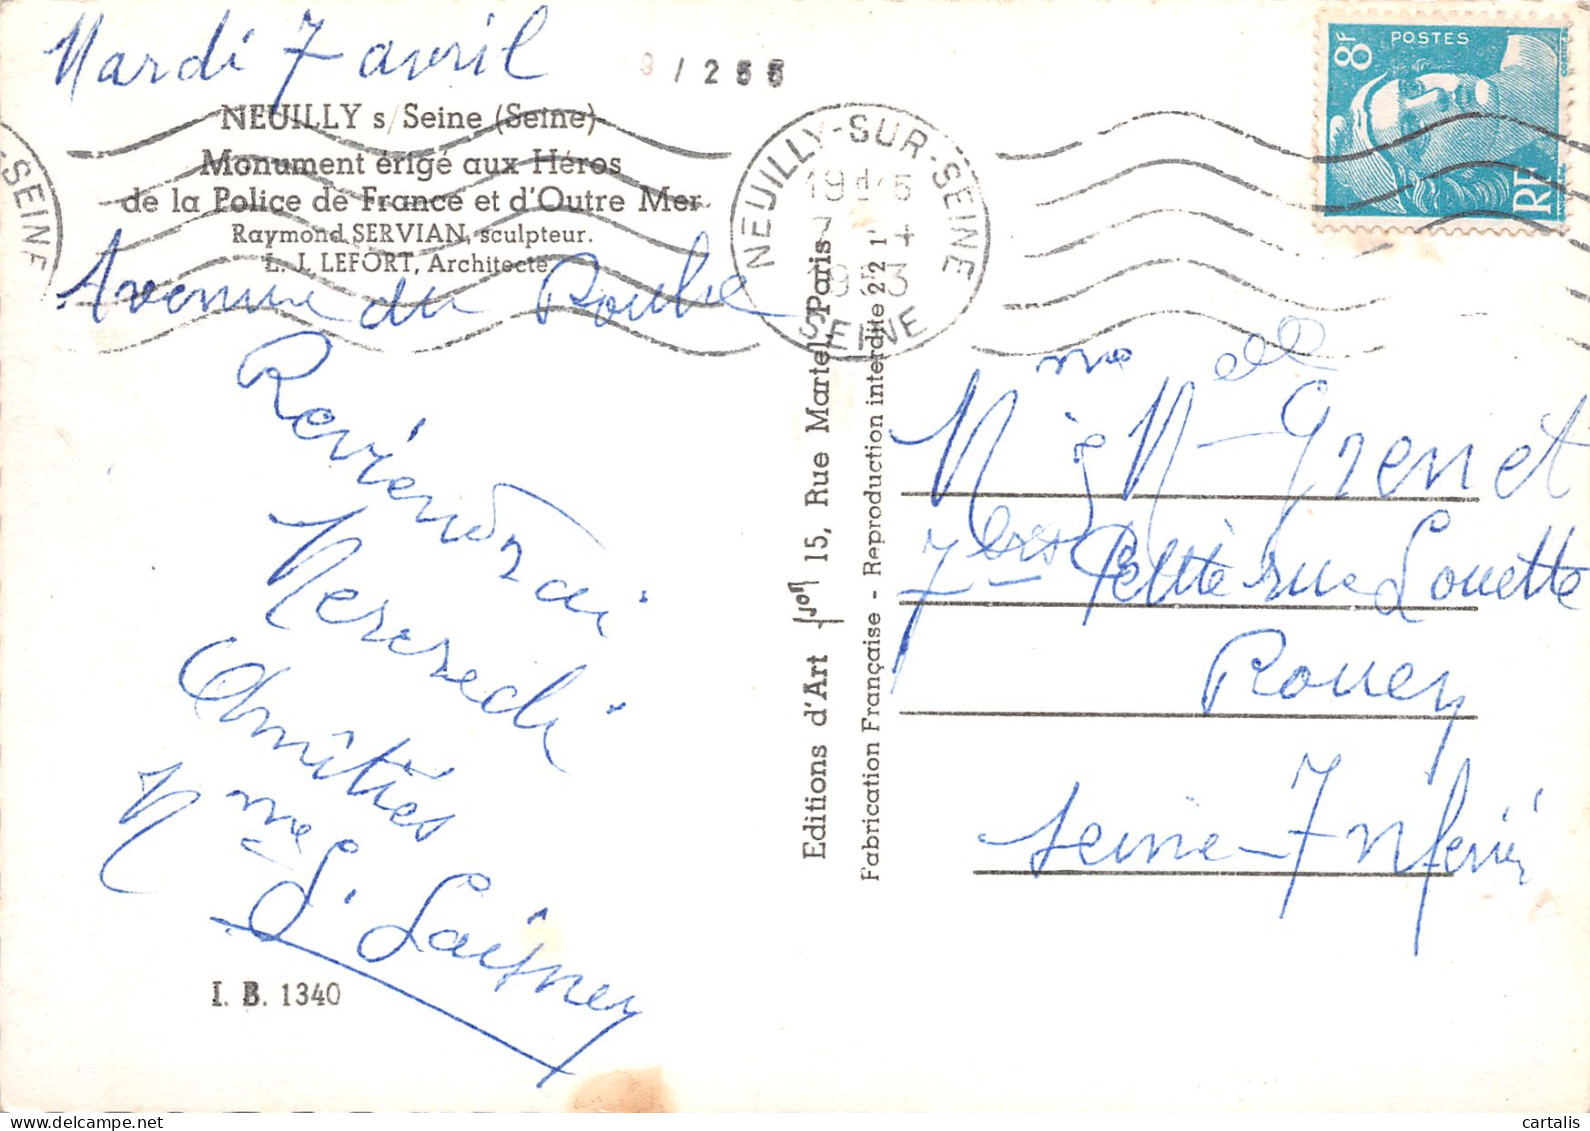 Mardi 7 avril
91255
NEUILLY s/Seine (Seine)
Monument érigé aux Héros
de la Police de France et d'Outre Mer
Raymond SERVIAN, sculpteur.
L. J. LEFORT, Architecte
Avenue du Roule
Reviendrai
Mercredi
Amitiés
Mme
I. B. 1340
Editions d'Art 15, Rue Martel, Paris
Fabrication Française - Reproduction interdite 22 1
NEUILLY-SUR-SEINE
7 - 4
1953
SEINE
-SEINE
8F
POSTES
RF
Grenet
7 Petite rue Louette
Rouen
Seine-Inférieure
cartalis | www.delcampe.net